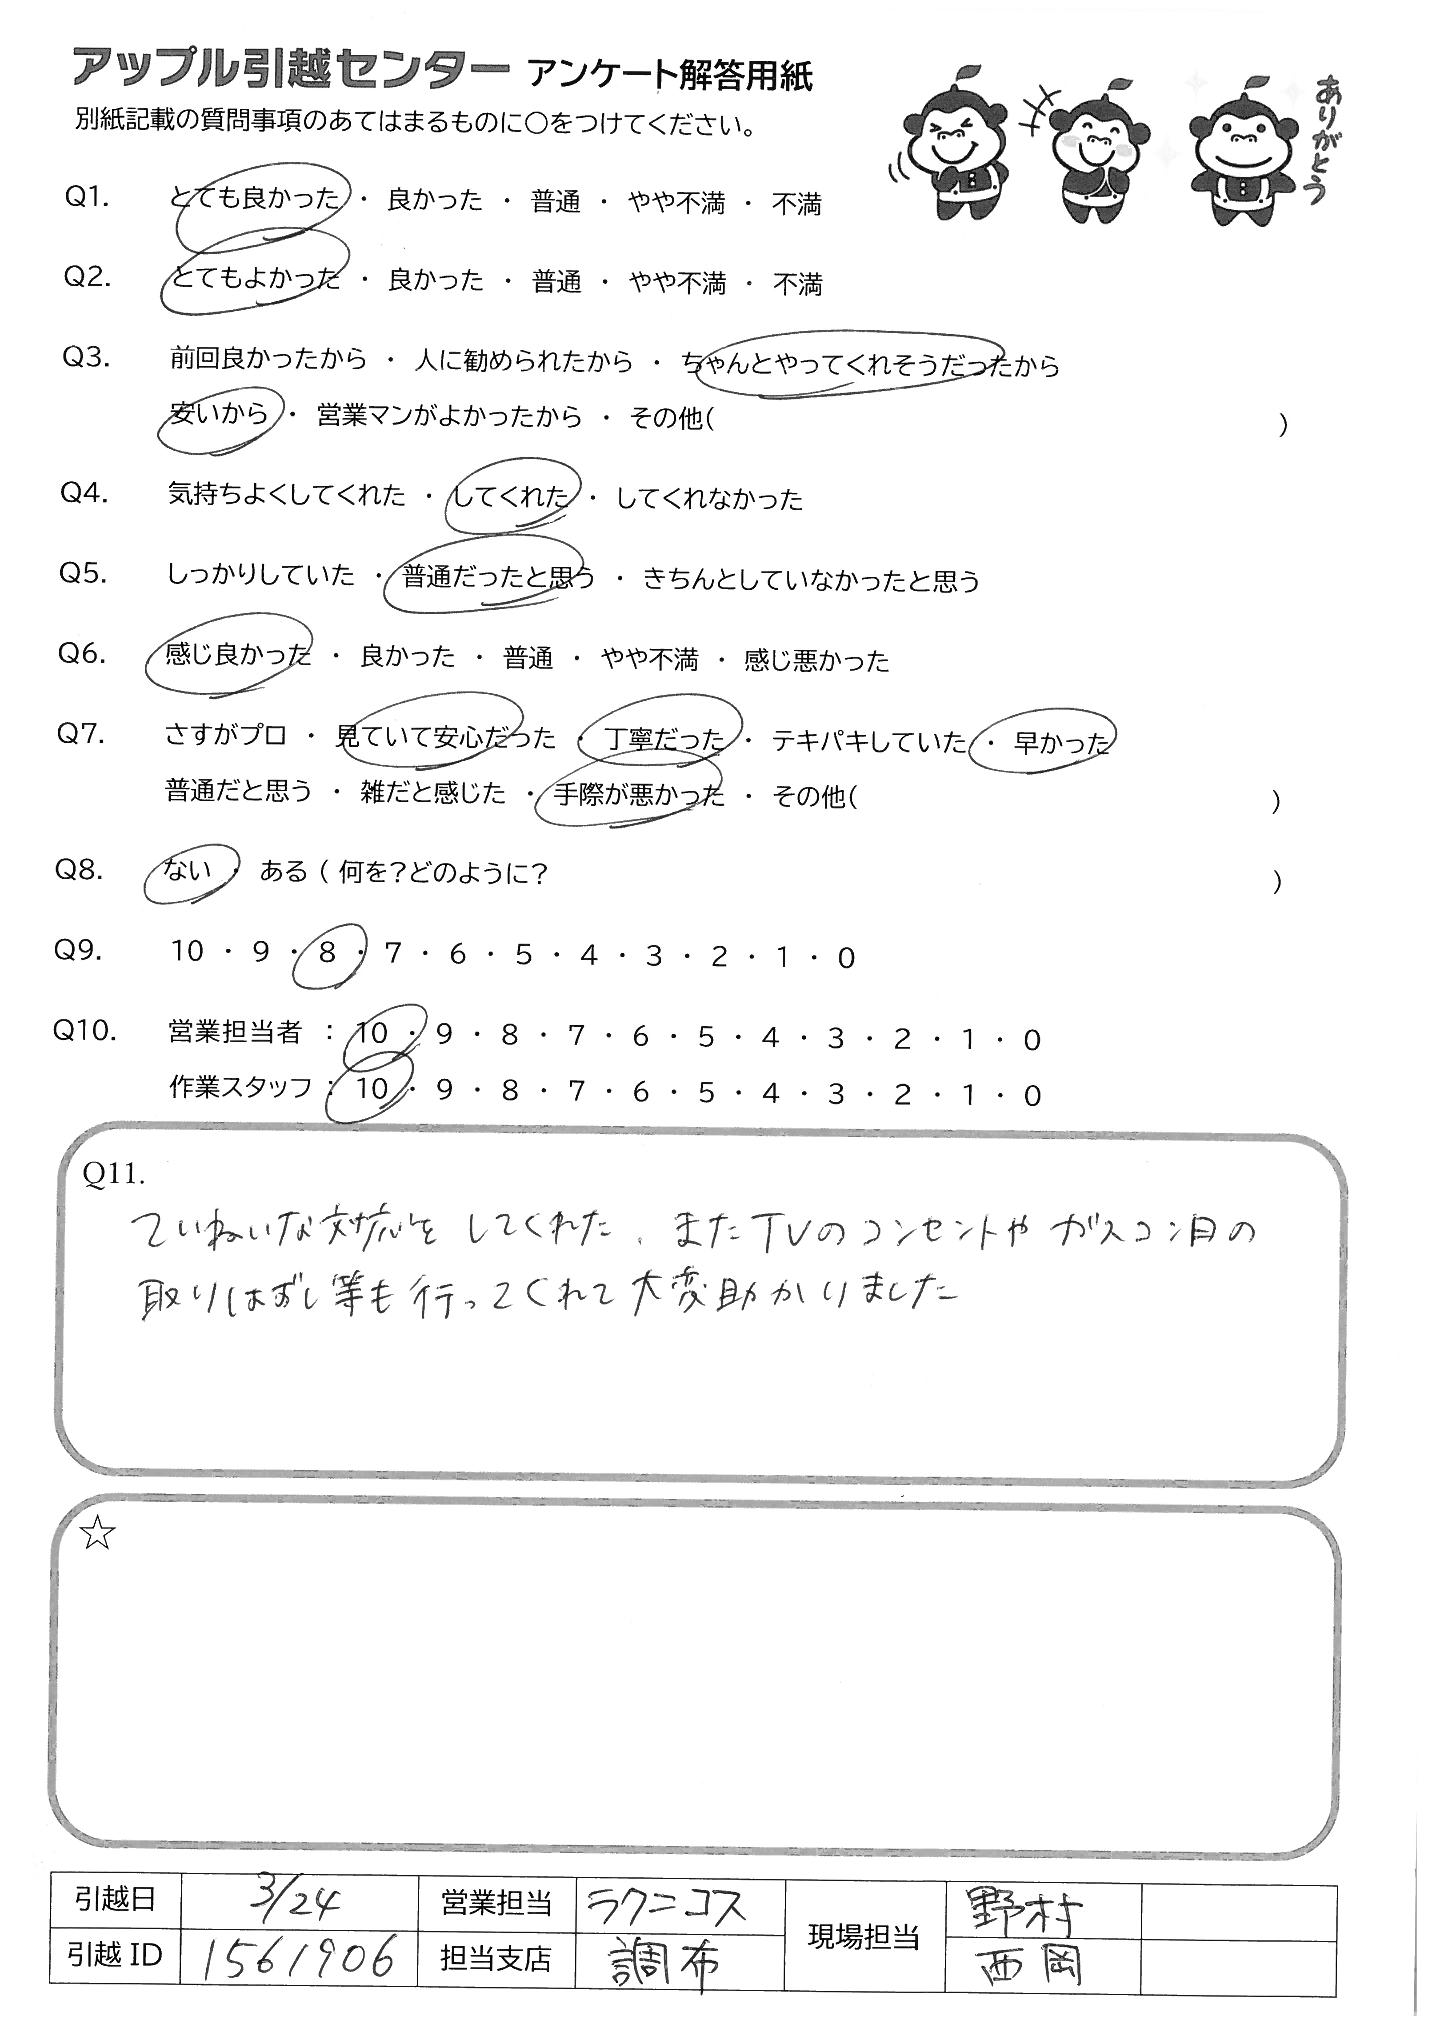 アップル引越センター アンケート解答用紙
別紙記載の質問事項のあてはまるものに○をつけてください。
ありがとう
Q1. とても良かった ・ 良かった ・ 普通 ・ やや不満 ・ 不満
Q2. とてもよかった ・ 良かった ・ 普通 ・ やや不満 ・ 不満
Q3. 前回良かったから ・ 人に勧められたから ・ ちゃんとやってくれそうだったから
安いから ・ 営業マンがよかったから ・ その他( )
Q4. 気持ちよくしてくれた ・ してくれた ・ してくれなかった
Q5. しっかりしていた ・ 普通だったと思う ・ きちんとしていなかったと思う
Q6. 感じ良かった ・ 良かった ・ 普通 ・ やや不満 ・ 感じ悪かった
Q7. さすがプロ ・ 見ていて安心だった ・ 丁寧だった ・ テキパキしていた ・ 早かった
普通だと思う ・ 雑だと感じた ・ 手際が悪かった ・ その他( )
Q8. ない ・ ある ( 何を?どのように? )
Q9. 10 ・ 9 ・ 8 ・ 7 ・ 6 ・ 5 ・ 4 ・ 3 ・ 2 ・ 1 ・ 0
Q10. 営業担当者 : 10 ・ 9 ・ 8 ・ 7 ・ 6 ・ 5 ・ 4 ・ 3 ・ 2 ・ 1 ・ 0
作業スタッフ : 10 ・ 9 ・ 8 ・ 7 ・ 6 ・ 5 ・ 4 ・ 3 ・ 2 ・ 1 ・ 0
Q11.
ていねいな対応をしてくれた、またTVのコンセントやガスコン目の
取りはずし等も行ってくれて大変助かりました
☆
引越日 3/24 営業担当 ラクニコス 現場担当 野村
引越ID 1561906 担当支店 調布 西岡